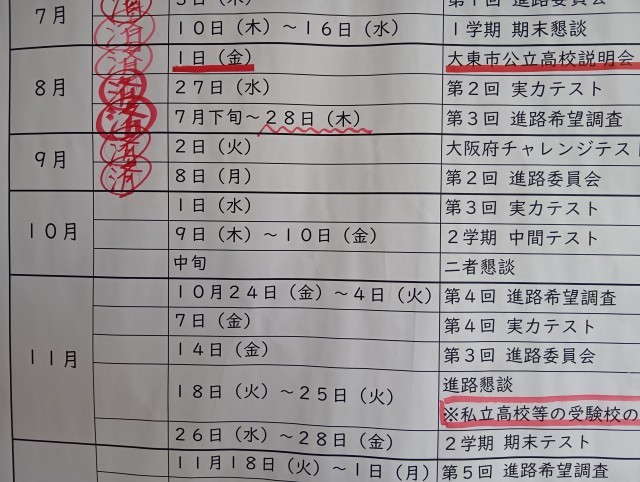 7月
10日（木）～16日（水） 1学期 期末懇談
8月
1日（金） 大東市公立高校説明会
27日（水） 第2回 実力テスト
7月下旬～28日（木） 第3回 進路希望調査
9月
済 2日（火） 大阪府チャレンジテスト
済 8日（月） 第2回 進路委員会
10月
1日（水） 第3回 実力テスト
9日（木）～10日（金） 2学期 中間テスト
中旬 二者懇談
11月
10月24日（金）～4日（火） 第4回 進路希望調査
7日（金） 第4回 実力テスト
14日（金） 第3回 進路委員会
18日（火）～25日（火） 進路懇談
※私立高校等の受験校の
26日（水）～28日（金） 2学期 期末テスト
11月18日（火）～1日（月） 第5回 進路希望調査